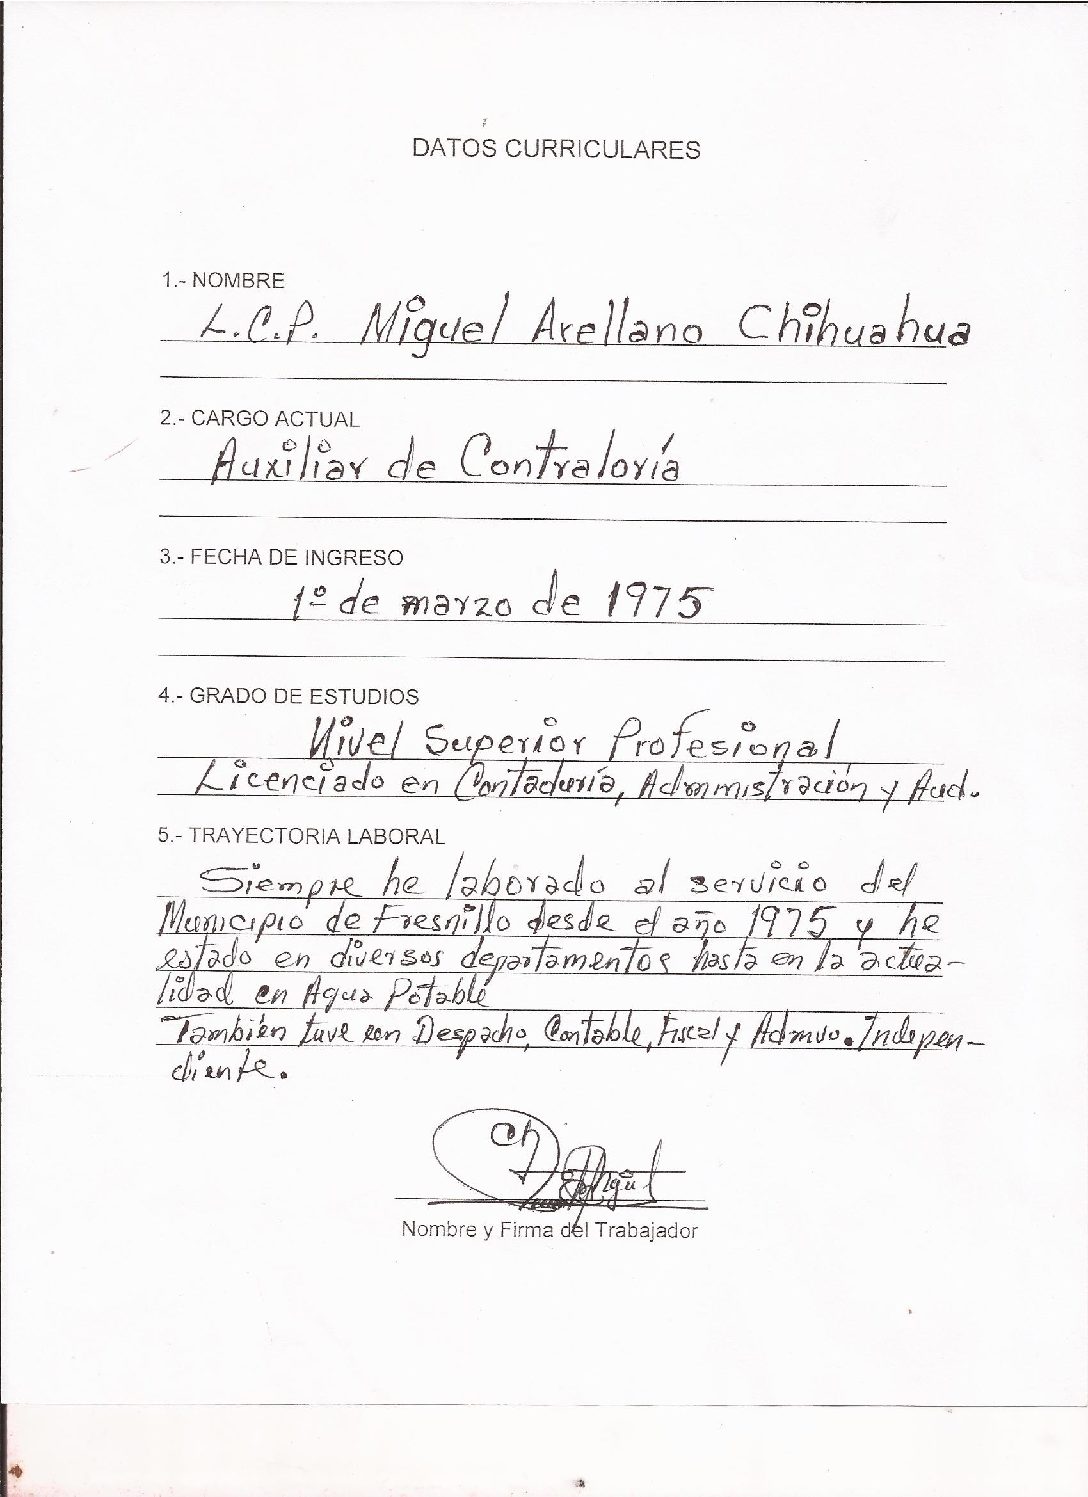 DATOS CURRICULARES
1.- NOMBRE
L.C.P. Miguel Arellano Chihuahua
2.- CARGO ACTUAL
Auxiliar de Contraloría
3.- FECHA DE INGRESO
1º de marzo de 1975
4.- GRADO DE ESTUDIOS
Nivel Superior Profesional,
Licenciado en Contaduría, Administración y Aud.
5.- TRAYECTORIA LABORAL
Siempre he laborado al servicio del
Municipio de Fresnillo desde el año 1975 y he
estado en diversos departamentos hasta en la actua-
lidad en Agua Potable
También tuve un Despacho, Contable, Fiscal y Admvo. Indepen-
diente.
Nombre y Firma del Trabajador